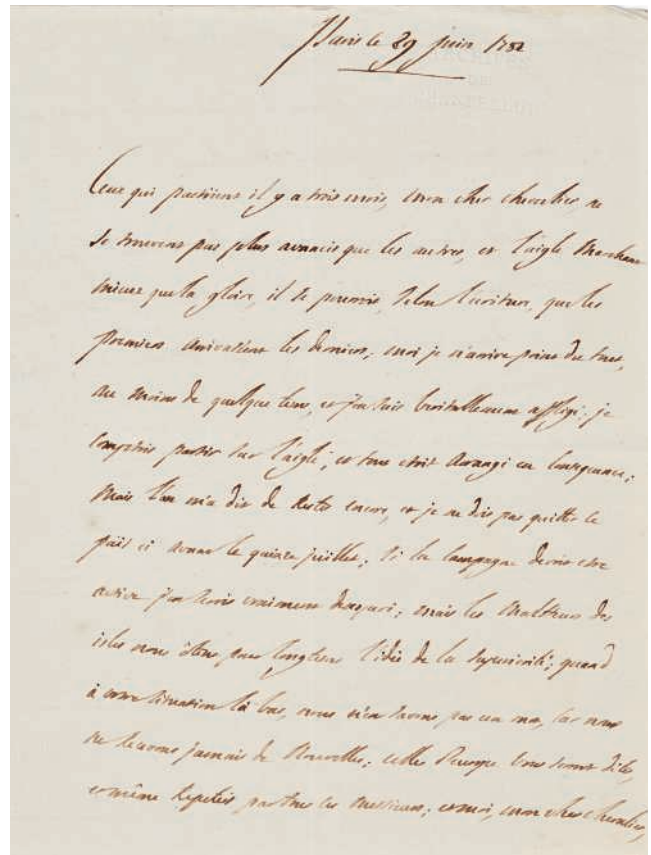 Paris le 29 juin 1782
ARCHIVES
DE
Ceux qui partirent il y a trois mois, mon cher chevalier, ne
se trouvent pas plus avancés que les autres, et l'aigle marchant
mieux que la gloire, il se pourroit, selon l'ecriture, que les
premiers arrivassent les derniers; moi je n'arrive point du tout,
au moins de quelque tems, et j'en suis veritablement affligé; je
comptois partir sur l'aigle, et tout etoit arrangé en consequence;
mais l'on m'a dit de rester encore, et je ne dois pas quitter le
païs ci avant le quinze juillet; si la campagne devoit etre
active j'en serois vraiment ; mais les malheurs des
isles nous ôtent pour longtems l'idée de la superiorité; quand
à votre situation là bas, nous n'en savons pas un mot, car nous
ne recevons jamais de nouvelles; celles d'europe vous seront dites,
et même repetées par tous les messieurs; et moi, mon cher chevalier,